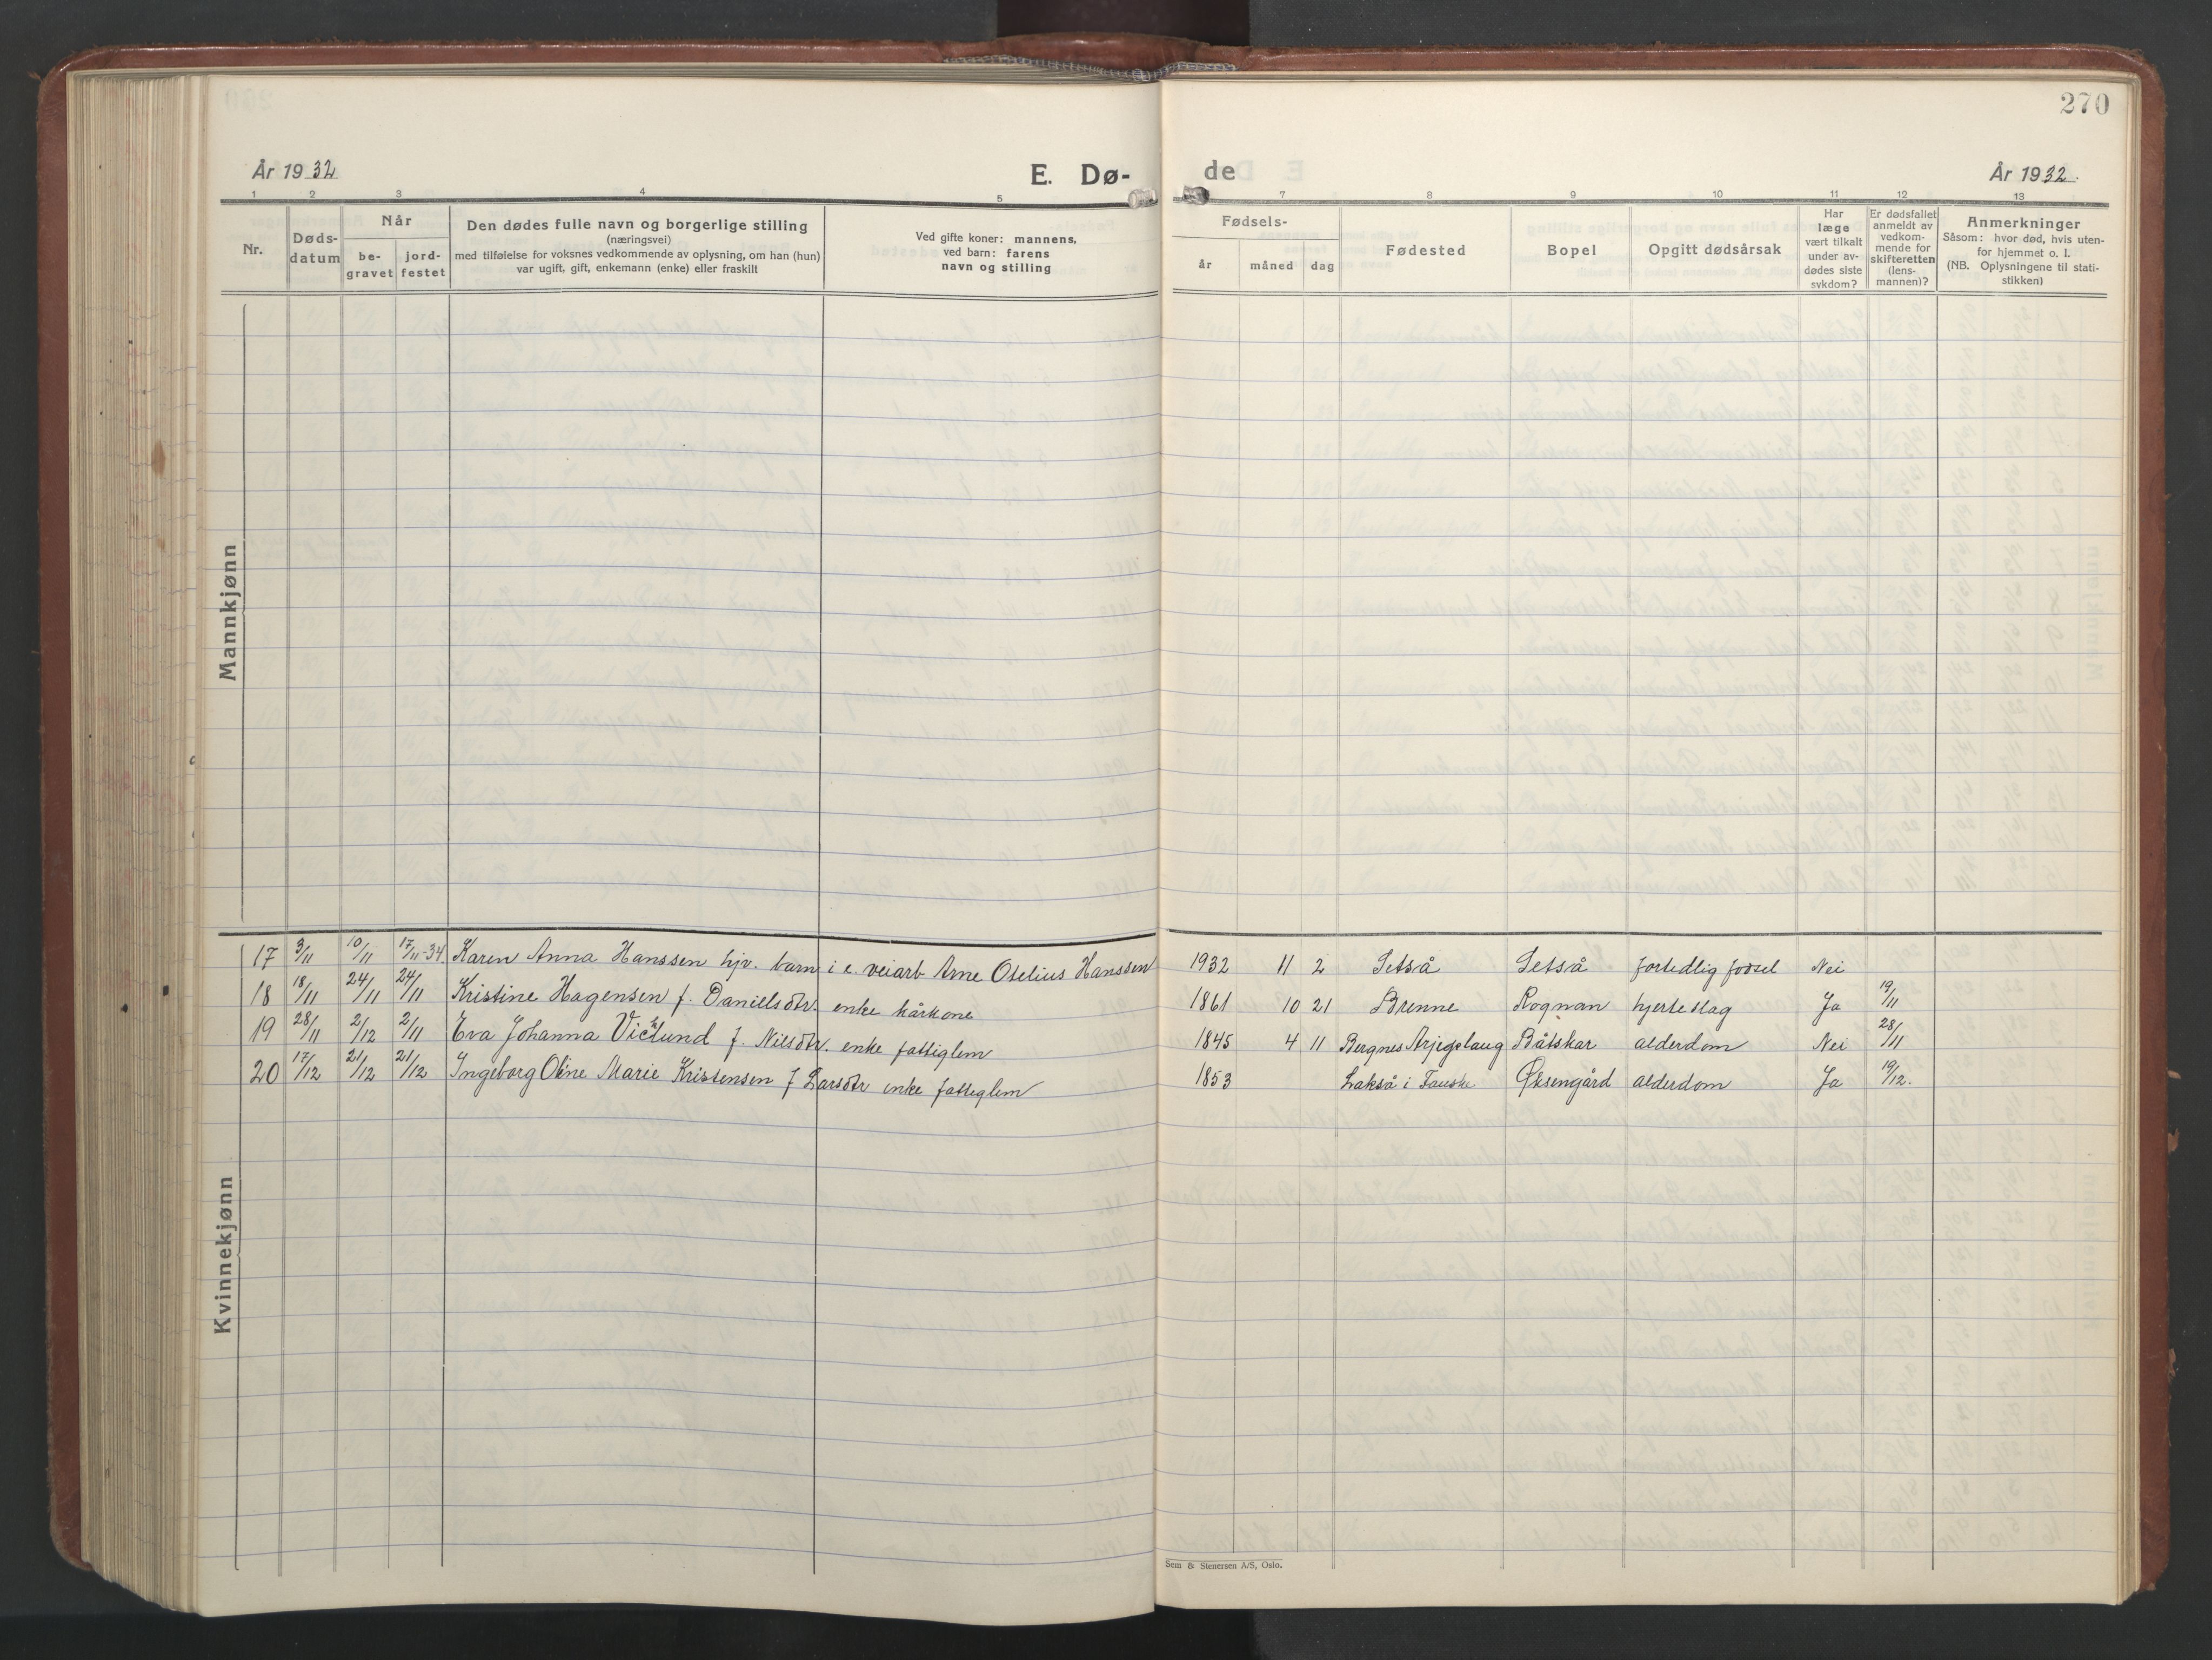 270
År 1932
E. Dø-
de
År 1932.
1 2 3 4 5 7 8 9 10 11 12 13
Nr.
Døds-
datum
Når
be-
gravet
jord-
festet
Den dødes fulle navn og borgerlige stilling
(næringsvei)
med tilføielse for voksnes vedkommende av oplysning, om han (hun)
var ugift, gift, enkemann (enke) eller fraskilt
Ved gifte koner: mannens,
ved barn: farens
navn og stilling
Fødsels-
år måned dag
Fødested
Bopel
Opgitt dødsårsak
Har
læge
vært tilkalt
under av-
dødes siste
sykdom?
Er dødsfallet
anmeldt av
vedkom-
mende for
skifteretten
(lens-
mannen)?
Anmerkninger
Såsom: hvor død, hvis uten-
for hjemmet o. l.
(NB. Oplysningene til stati-
stikken)
Mannkjønn
17 3/11 10/11 17/11-34. Karen Anna Hanssen hjv. barn i e. veiarb Arne Otelius Hanssen 1932 11 2 Setså Setså fortidlig fødsel Nei
18 18/11 24/11 24/11 Kristine Hagensen f. Danielsdtr. enke kårkone 1861 10 21 Brenne Rognan hjerteslag Ja 19/11
19 28/11 2/12 2/11 Eva Johanna f. Nilsdtr. enke fattiglem 1845 4 11 Bergnes Arjeplaug Båtskar alderdom Nei 28/11
20 17/12 21/12 21/12 Ingeborg Oline Marie Kristensen f Larsdtr enke fattiglem 1853 Lakså i Fauske Øksengård alderdom Ja 19/12.
Kvinnekjønn
Sem & Stenersen A/S, Oslo.